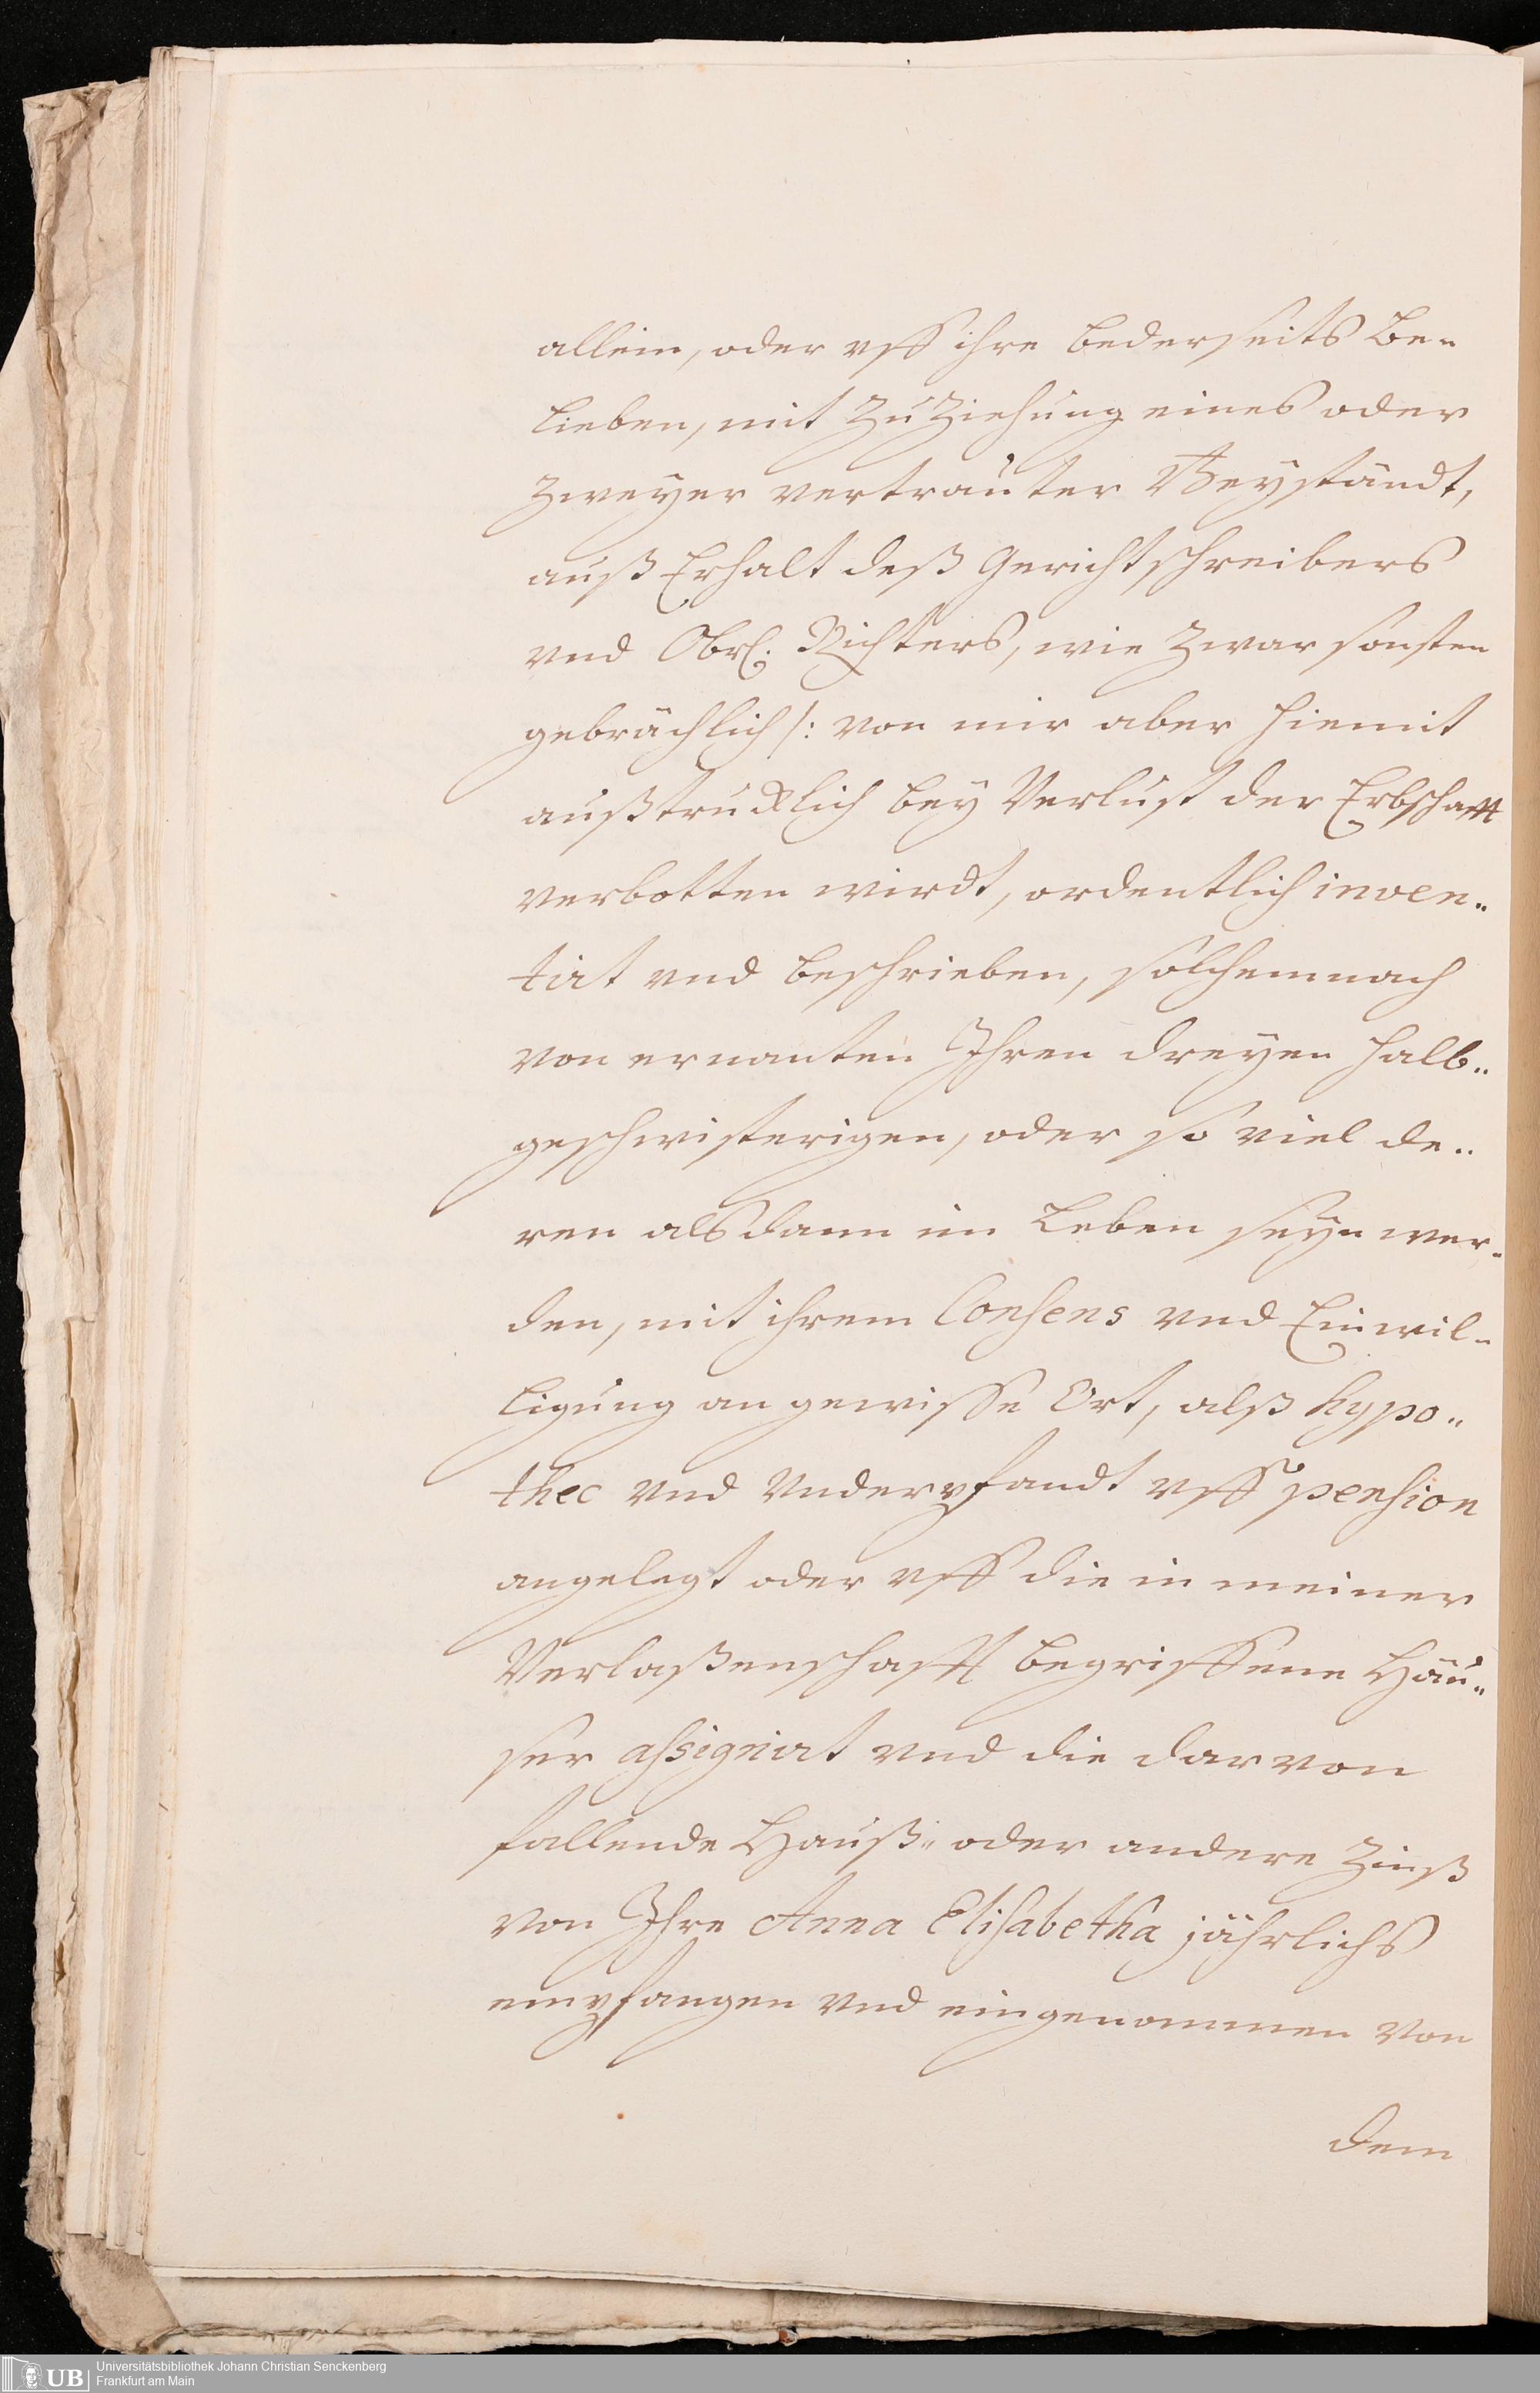 allein, oder vff ihre bederseits Be-
lieben, mit Zu Ziehung eines oder
Zweyer vertrauter Beyständt,
auß Erhalt deß Gerichtschreibers
vnd Obrl. Richters, wie Zwar sonsten
gebrächlich /: von mir aber hiemit
außtrucklich bey Verlust der Erbschafft
verbotten wirdt, ordentlich inven-
tirt vnd beschrieben, solchemnach
von ernanten Ihren dreyen halb-
geschwisterigen, oder so viel de-
ren alsdann im Leben seyn wer-
den, mit ihrem Consens vnd Einwil-
ligung an gewisse Ort, alß hypo-
thec vnd Vnderpfandt vff pension
angelegt oder vff die in meiner
Verlaßenschafft begriffene Häu-
ser assignirt vnd die darvon
fallende Hauß- oder andere Zinß
von Ihre Anna Elisabetha jährlichs
empfangen vnd eingenommen von
dem
UB
Universitätsbibliothek Johann Christian Senckenberg
Frankfurt am Main